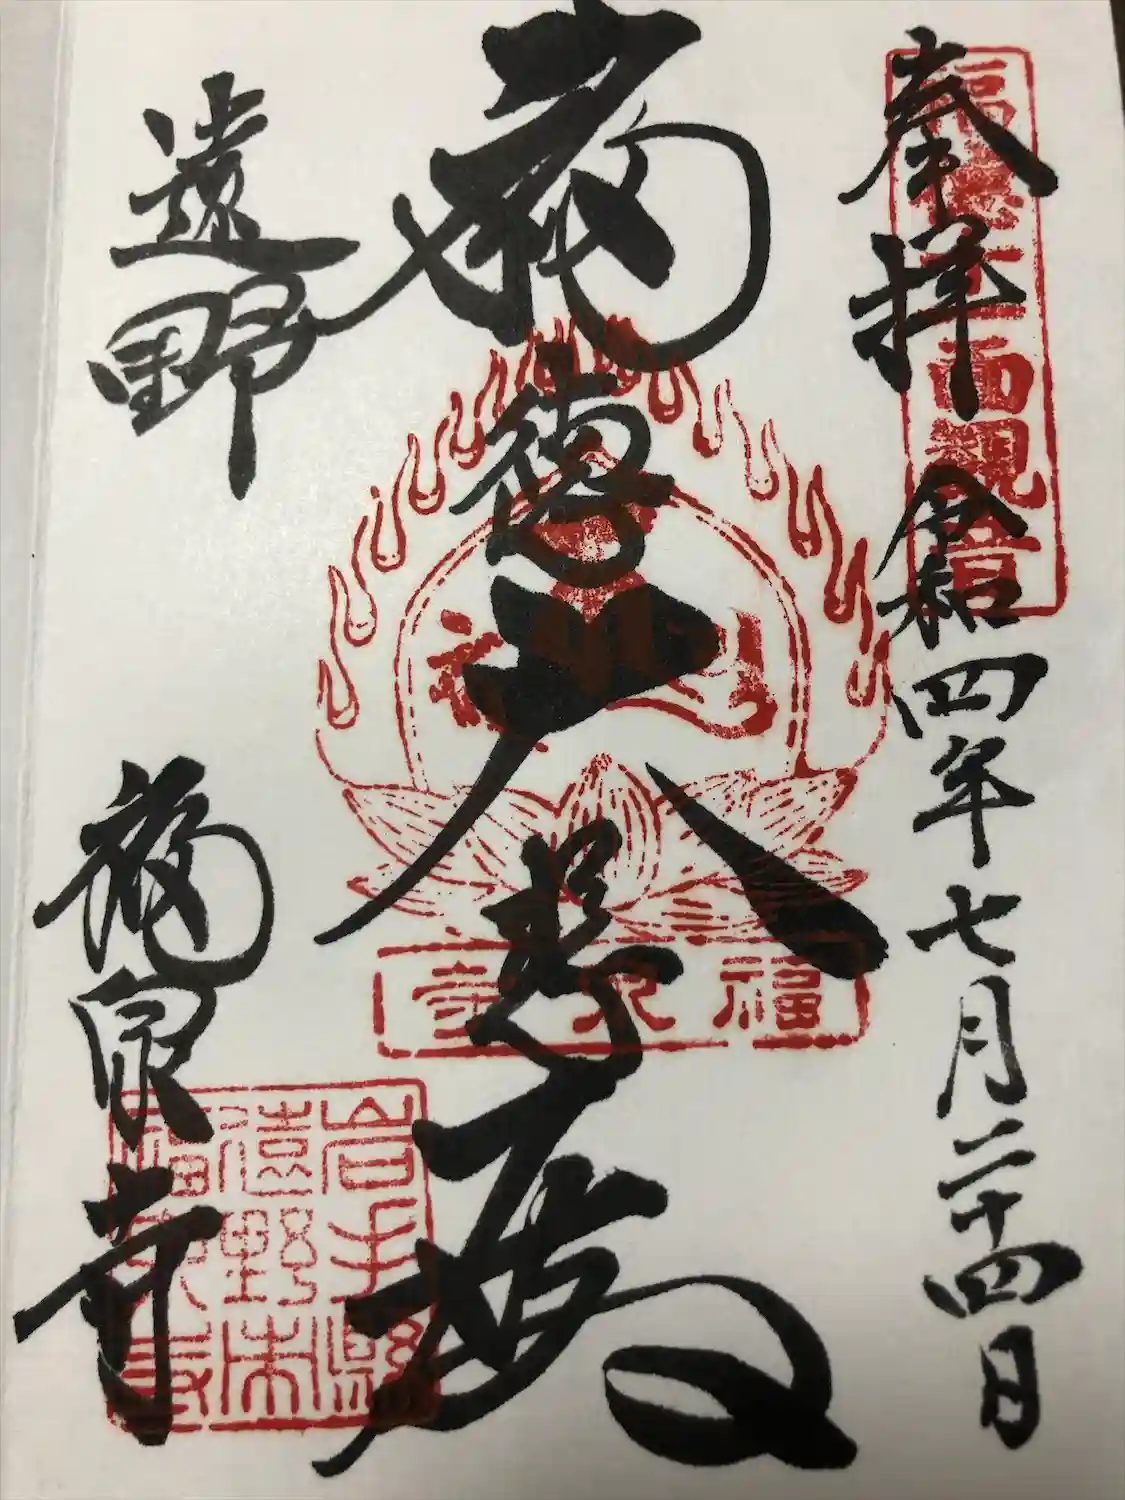 奉拝 令和四年七月二十四日
福徳大悲殿
遠野 福泉寺
福徳十一面観音
福泉寺
岩手縣
遠野市
福泉寺